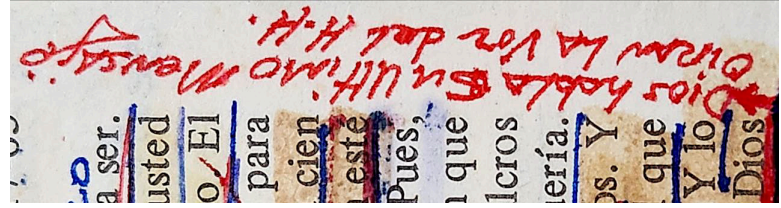 Dios habla Ultimo Mensaje
Oiran La Voz del H.H.
a ser.
usted
o El
para
cien
este
Pues,
n que
lcros
ería.
os. Y
que
Y lo
Dios